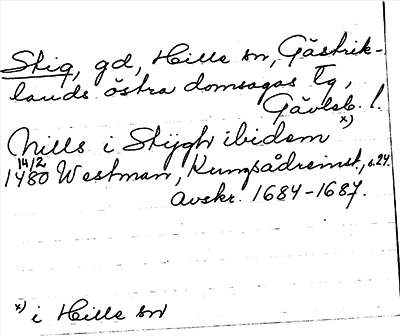 Stig, gd, Hille sn, Gästrik-
lands östra domsagas tg,
Gävleb. l.
Nills i Stijgh ibidem x)
14/2
1480 Westman, Kungsådreinst., s. 24.
Avskr. 1684-1687.
x) i Hille sn